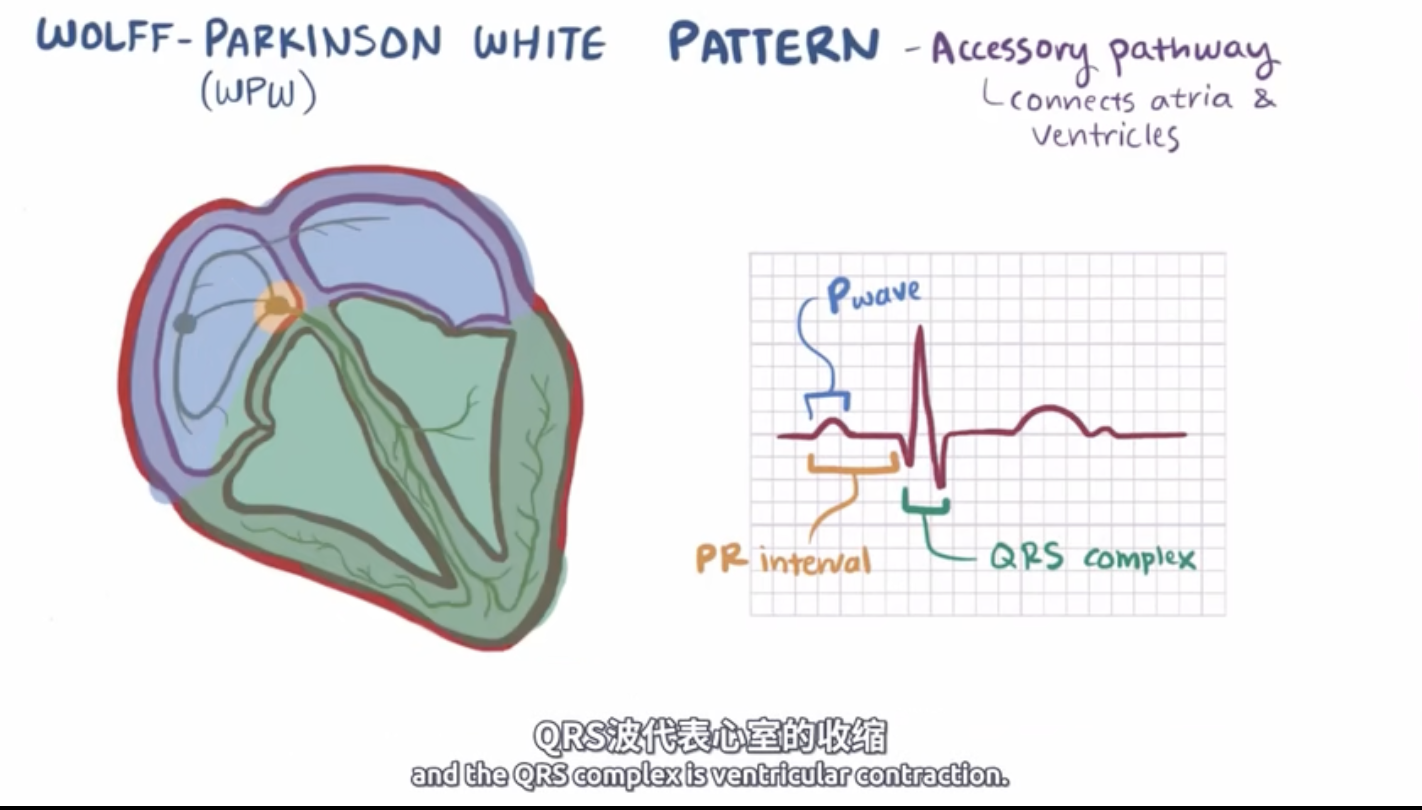 WOLFF-PARKINSON WHITE PATTERN - Accessory pathway
(WPW)
connects atria &
ventricles
P wave
PR interval
QRS complex
QRS波代表心室的收缩
and the QRS complex is ventricular contraction.